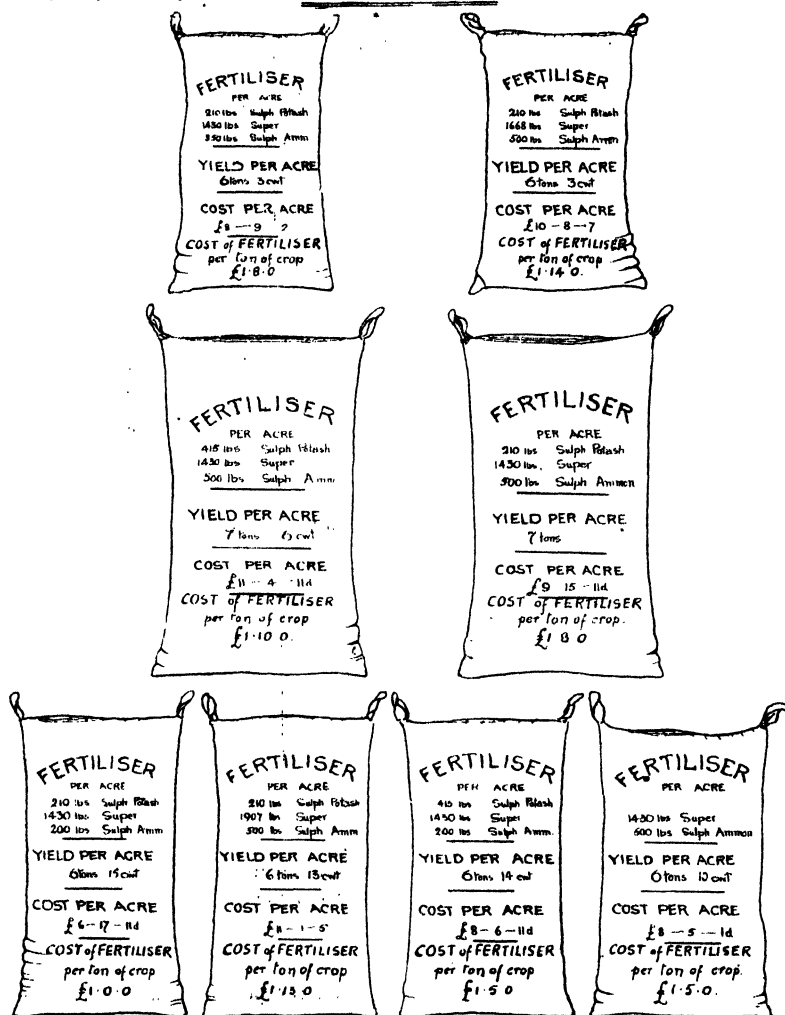 FERTILISER
PER ACRE
210 lbs Sulph Potash
1430 lbs Super
350 lbs Sulph Amm
YIELD PER ACRE
6 tons 3 cwt
COST PER ACRE
£8 — 9
COST of FERTILISER
per ton of crop
£1·8·0
FERTILISER
PER ACRE
210 lbs Sulph Potash
1668 lbs Super
500 lbs Sulph Amm
YIELD PER ACRE
6 tons 3 cwt
COST PER ACRE
£10 — 8 — 7
COST of FERTILISER
per ton of crop
£1·14 0.
FERTILISER
PER ACRE
415 lbs Sulph Potash
1430 lbs Super
500 lbs Sulph Amm
YIELD PER ACRE
7 tons cwt
COST PER ACRE
£11 — 4 — 11d
COST of FERTILISER
per ton of crop
£1·10 0.
FERTILISER
PER ACRE
210 lbs Sulph Potash
1430 lbs. Super
500 lbs Sulph Ammon
YIELD PER ACRE
7 tons
COST PER ACRE
£9 15 — 11d
COST of FERTILISER
per ton of crop.
£1 8 0
FERTILISER
PER ACRE
210 lbs Sulph Potash
1430 lbs Super
200 lbs Sulph Amm
YIELD PER ACRE
6 tons 15 cwt
COST PER ACRE
£6 — 17 — 11d
COST of FERTILISER
per ton of crop
£1·0·0
FERTILISER
PER ACRE
210 lbs Sulph Potash
1907 lbs Super
500 lbs Sulph Amm
YIELD PER ACRE
6 tons 13 cwt
COST PER ACRE
£11 — 1 — 5
COST of FERTILISER
per ton of crop
£1·13 0
FERTILISER
PER ACRE
415 lbs Sulph Potash
1430 lbs Super
200 lbs Sulph Amm.
YIELD PER ACRE
6 tons 14 cwt
COST PER ACRE
£8 — 6 — 11d
COST of FERTILISER
per ton of crop
£1·5 0
FERTILISER
PER ACRE
1430 lbs Super
500 lbs Sulph Ammon
YIELD PER ACRE
6 tons cwt
COST PER ACRE
£8 — 5 — 1d
COST of FERTILISER
per ton of crop.
£1·5·0.